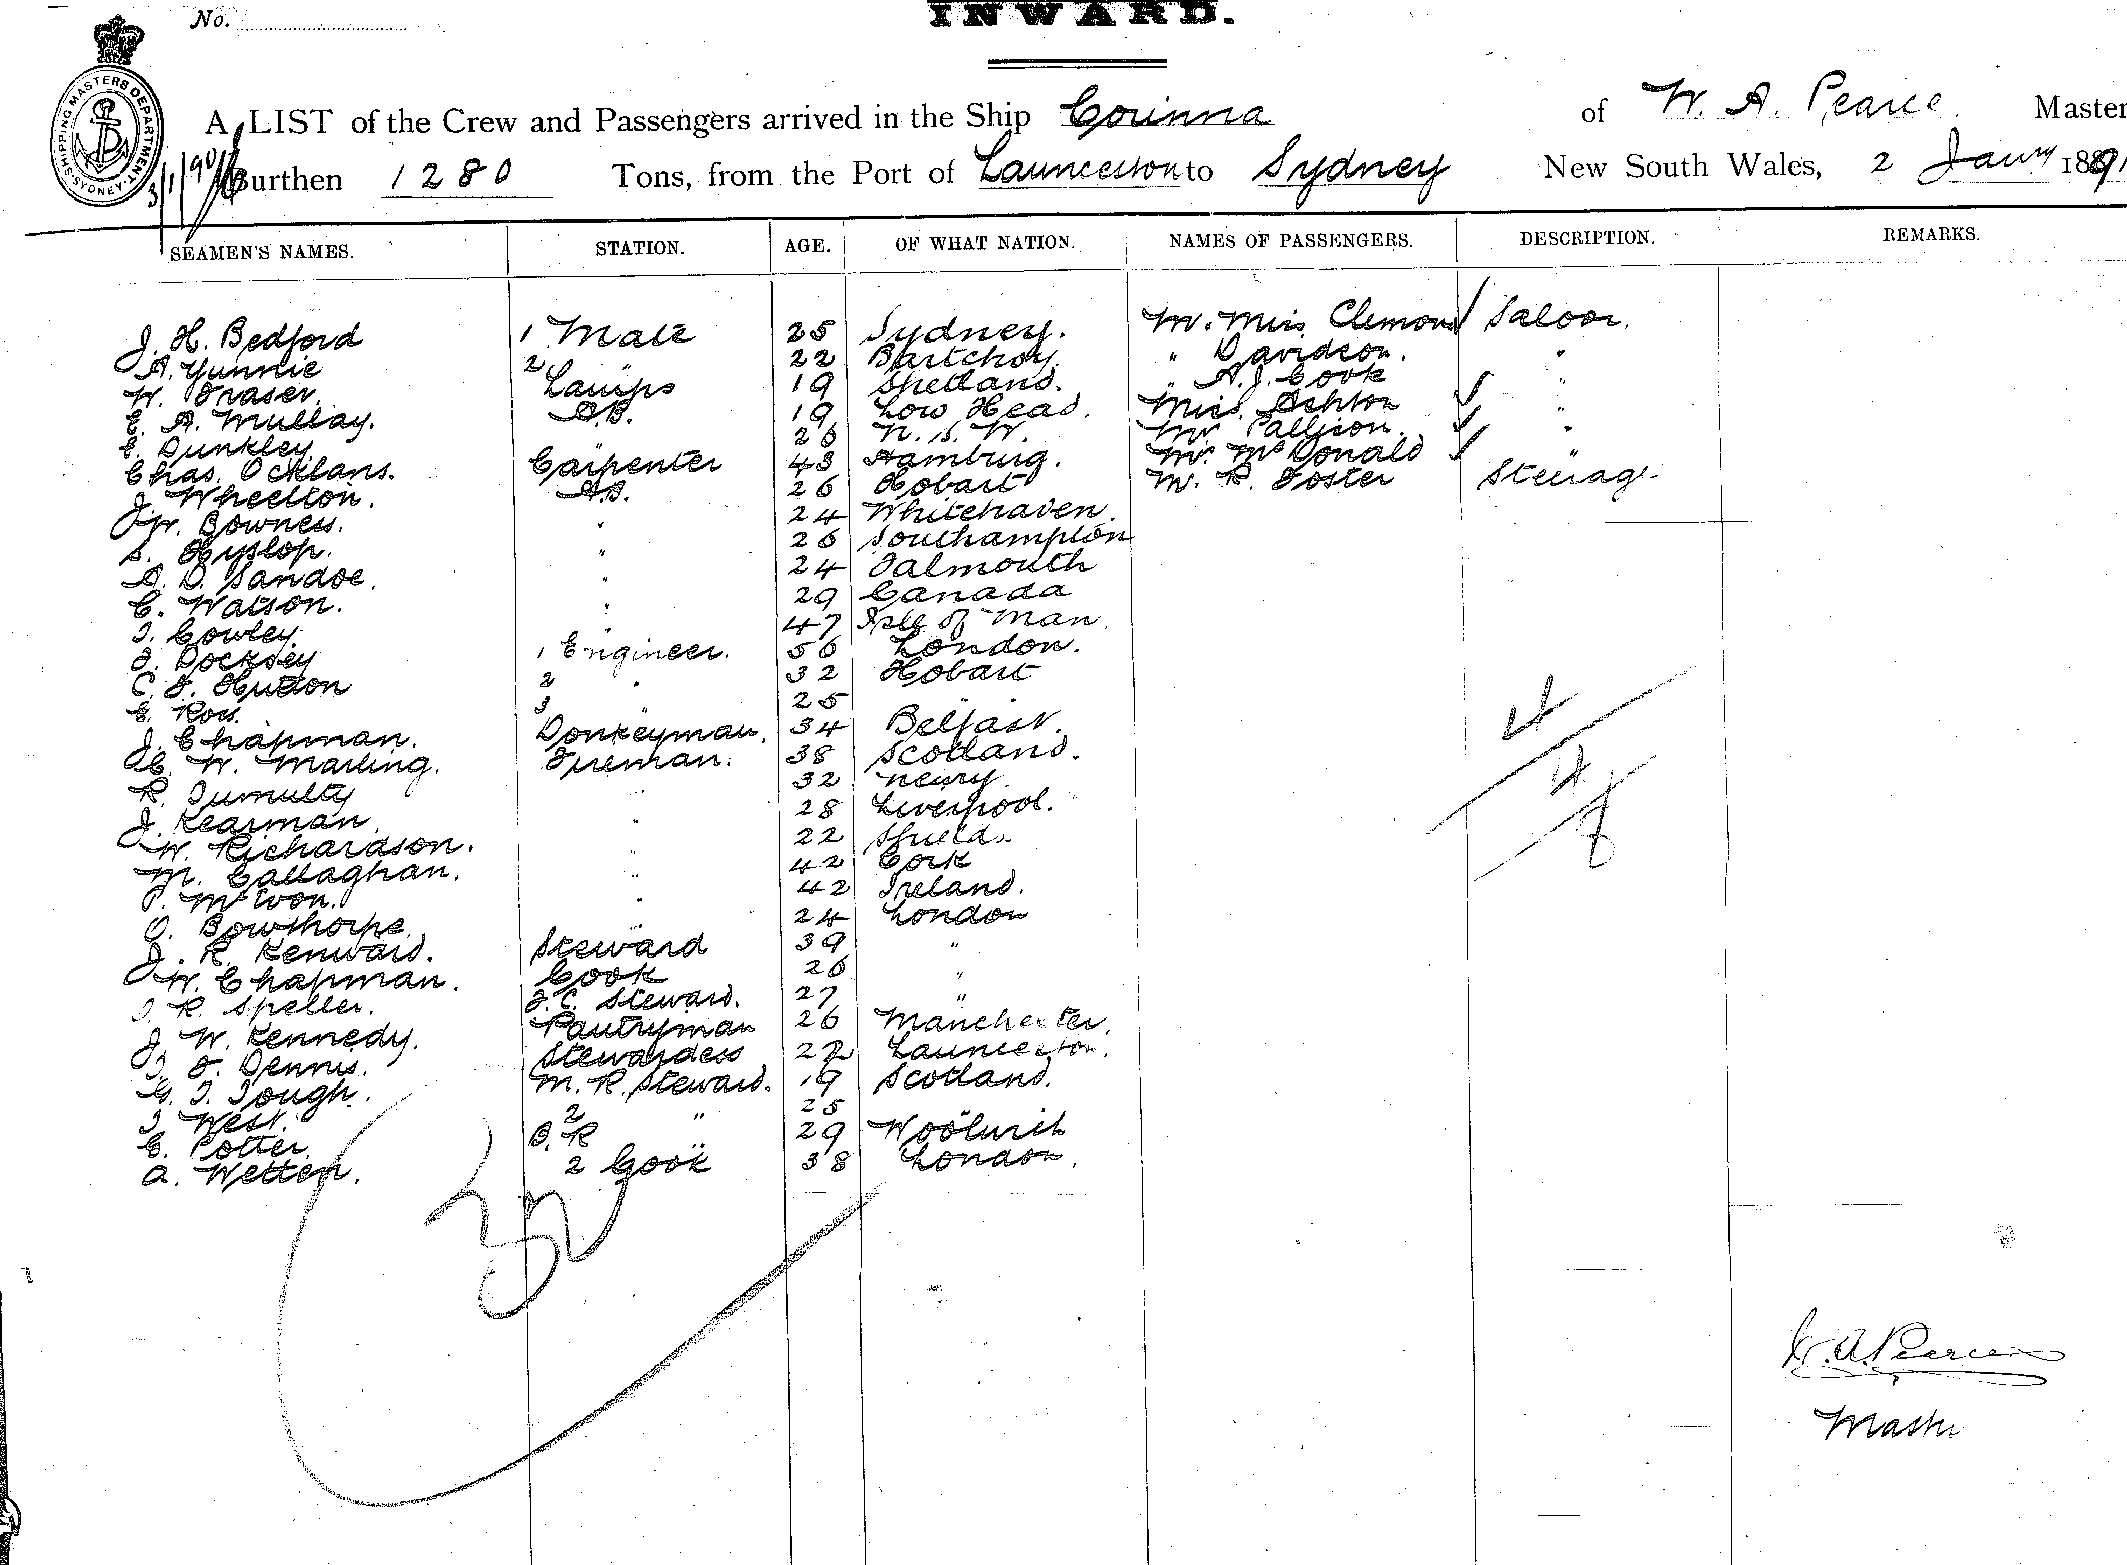 No.
INWARD.
SHIPPING MASTERS DEPARTMENT SYDNEY
A LIST of the Crew and Passengers arrived in the Ship Corinna of W. A. Pearce Master
3/1/90
Burthen 1280 Tons, from the Port of Launceston to Sydney New South Wales, 2 Jany 189
SEAMEN'S NAMES. STATION. AGE. OF WHAT NATION. NAMES OF PASSENGERS. DESCRIPTION. REMARKS.
J. H. Bedford 1 Mate 25 Sydney. Mr. Miss Saloon.
A. Yunnie 2 22 " Davidson. "
W. Fraser. Lamps 19 Shetland. " A. J. Cook "
E. A. Mullay. A.B. 19 Low Head. Miss. Ashton "
E. Dunkley 26 N. S. W. Mr Pallison. "
Chas. Carpenter 43 Hamburg. Mr. McDonald "
J. Wheelton. A.B. 26 Hobart M. R. Foster Steerage
J W. Bowness. " 24 Whitehaven.
S. Hyslop. " 26 Southampton
A. D. Sandoe. " 24 Falmouth
C. Watson. " 29 Canada
J. Cowley. " 47 Isle of Man.
J. Docksey 1 Engineer. 56 London.
C. F. Hutton 2 " 32 Hobart
E. Ross. 3 " 25
J. Chapman. Donkeyman. 34 Belfast.
C. W. Marling. Fireman. 38 Scotland.
R. Tumulty 32 Newry
J. Kearman. " 28 Liverpool.
W. Richardson. " 22 Shields.
M. Callaghan. " 42 Cork
P. McEvon. " 42 Ireland.
O. Bowthorpe. " 24 London
J. R. Kenward. Steward 39 "
W. Chapman. Cook 26 "
J. R. Speller. F. C. Steward. 27 "
J. W. Kennedy. Pantryman 26 Manchester.
J. F. Dennis. Stewardess 22 Launceston.
G. T. Tough. M. R. Steward. 19 Scotland.
J. West. 2 " 25
E. Potter. B. R " 29 Woolwich
A. Wetten. 2 Cook 38 London.
4
4
8
32
W. A. Pearce
Master